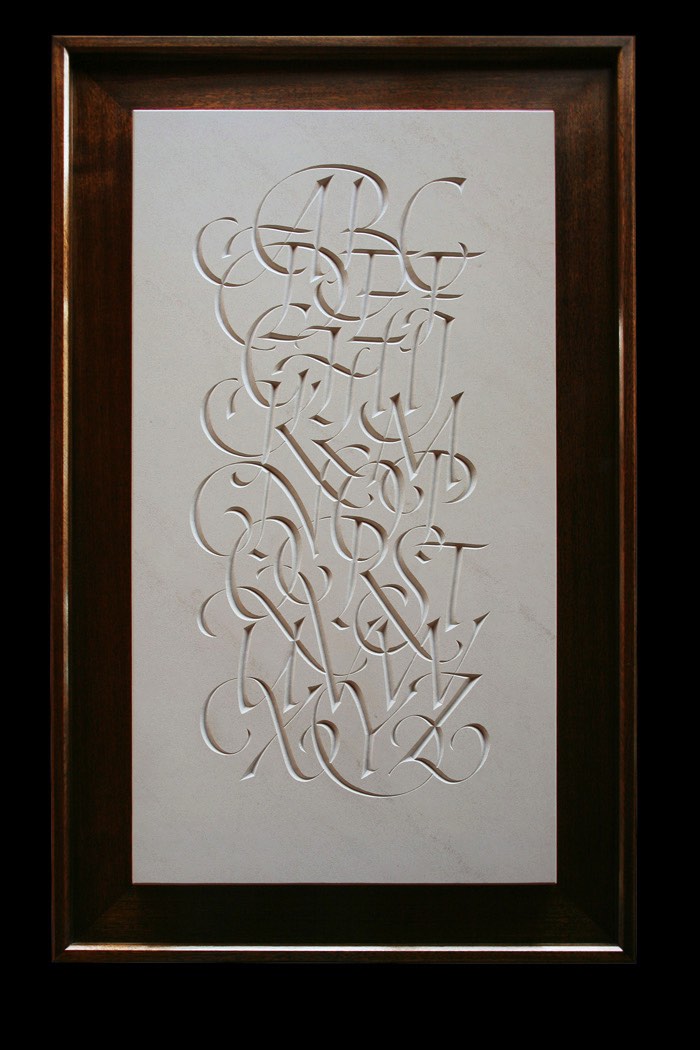 ABC
DEF
GHIJ
KLM
NOP
QRST
UVW
XYZ